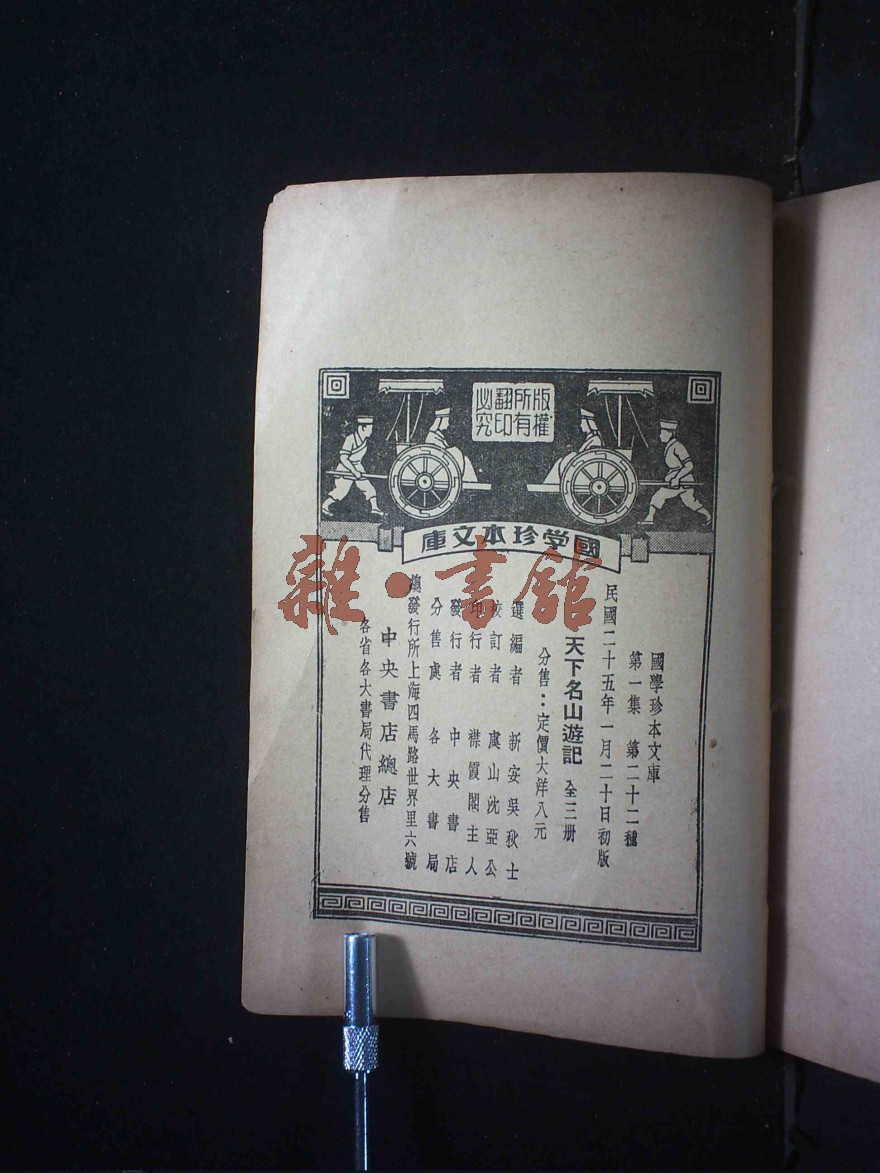 版權
所有
翻印
必究
國學珍本文庫
國學珍本文庫
第一集 第二十二種
民國二十五年一月二十日初版
天下名山遊記 全三册
分售：定價大洋八元
選編者 新安吳秋士
校訂者 虞山沈亞公
印行者 襟霞閣主人
發行者 中央書店
分售處 各大書局
總發行所上海四馬路世界里六號
中央書店總店
各省各大書局代理分售
雜·書館